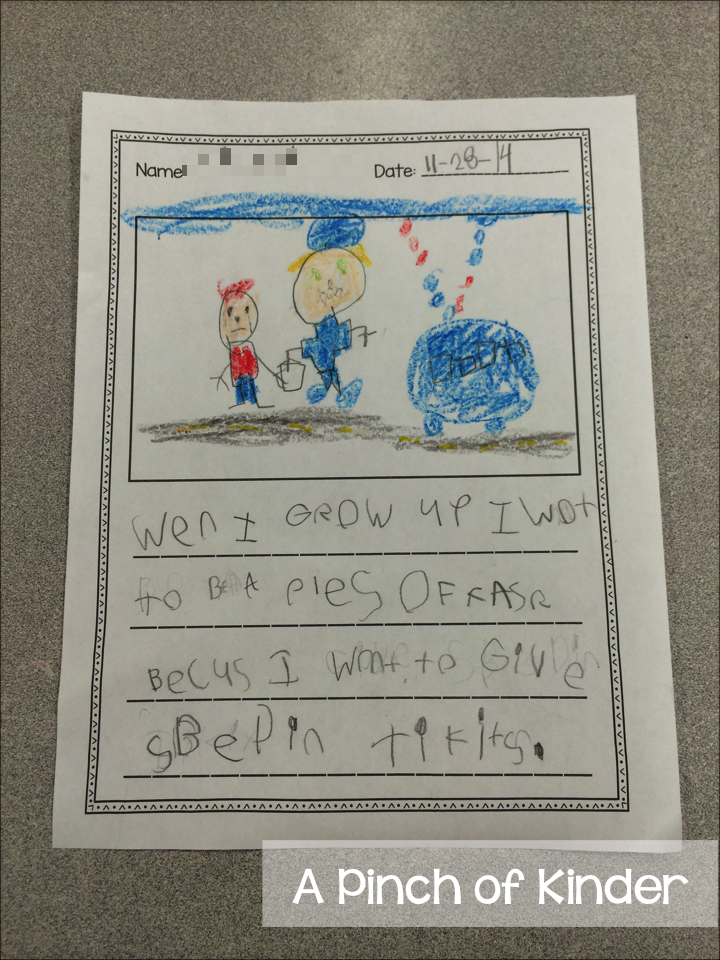 Name
Date: 11-28-14
wen I GROW UP I WOt
to Be A pleS OFKASR
BeCUS I Wont to GiVe
sBePin tikits.
A Pinch of Kinder